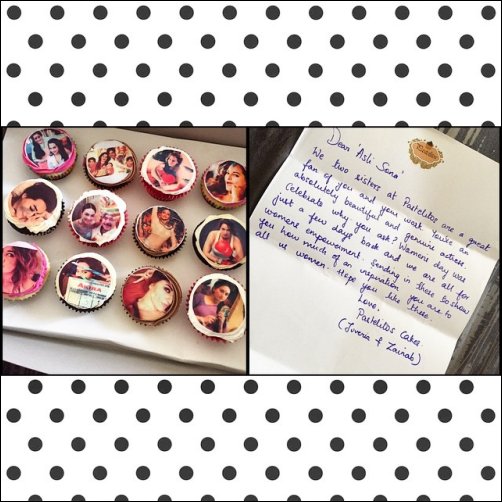 Dear 'Asli Sona'
We two sisters at Pastelitos are a great
fan of you and your work. You're an
absolutely beautiful and genuine actress.
Celebrate why you ask? Womens day was
just a few days back and we are all for
womens empowerment. Sending in these to show
you how much of an inspiration you are to
all us women. Hope you like these.
Love,
Pastelitos Cakes.
(Juveria & Zainab)
AKIRA